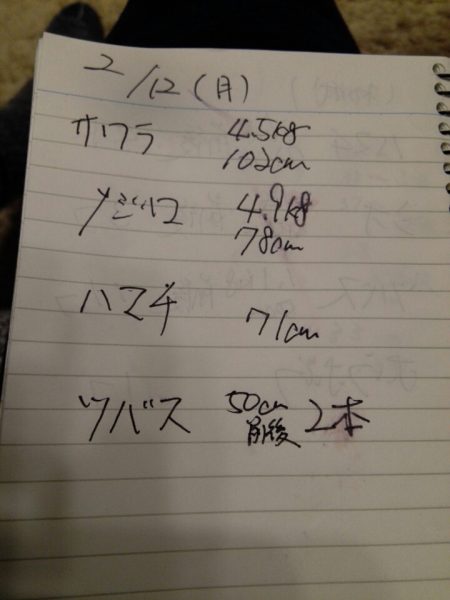 2/12(月)
サワラ 4.5kg
102cm
メジロ 4.9kg
78cm
ハマチ 71cm
ツバス 50cm
前後 2本